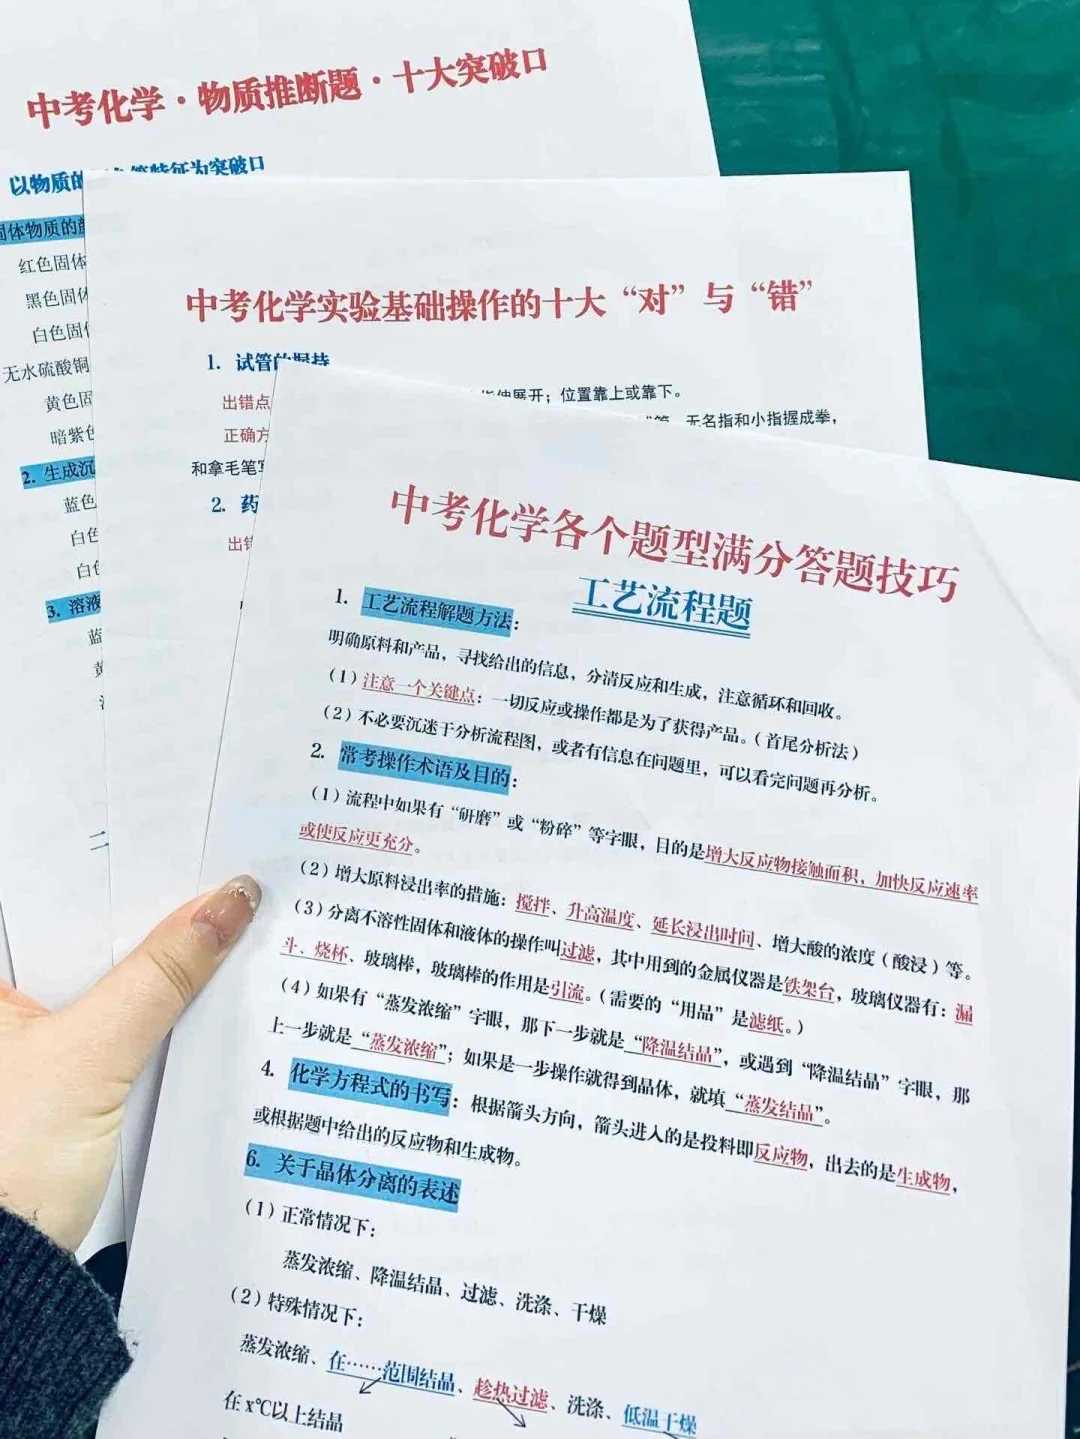 中考化学·物质推断题·十大突破口
以物质的
特征为突破口
固体物质的颜
红色固体
黑色固体
白色固体
无水硫酸铜
黄色固
暗紫色
2. 生成沉
蓝色
白色
白色
3. 溶液
蓝
黄
二
中考化学实验基础操作的十大“对”与“错”
1. 试管的握持
出错点
展开；位置靠上或靠下。
正确方
无名指和小指握成拳，
和拿毛笔写
2. 药
出错
中考化学各个题型满分答题技巧
工艺流程题
1. 工艺流程解题方法：
明确原料和产品，寻找给出的信息，分清反应和生成，注意循环和回收。
（1）注意一个关键点：一切反应或操作都是为了获得产品。（首尾分析法）
（2）不必要沉迷于分析流程图，或者有信息在问题里，可以看完问题再分析。
2. 常考操作术语及目的：
（1）流程中如果有“研磨”或“粉碎”等字眼，目的是增大反应物接触面积，加快反应速率
或使反应更充分。
（2）增大原料浸出率的措施：搅拌、升高温度、延长浸出时间、增大酸的浓度（酸浸）等。
（3）分离不溶性固体和液体的操作叫过滤，其中用到的金属仪器是铁架台，玻璃仪器有：漏
斗、烧杯、玻璃棒，玻璃棒的作用是引流。（需要的“用品”是滤纸。）
（4）如果有“蒸发浓缩”字眼，那下一步就是“降温结晶”，或遇到“降温结晶”字眼，那
上一步就是“蒸发浓缩”；如果是一步操作就得到晶体，就填“蒸发结晶”。
4. 化学方程式的书写：根据箭头方向，箭头进入的是投料即反应物，出去的是生成物，
或根据题中给出的反应物和生成物。
6. 关于晶体分离的表述
（1）正常情况下：
蒸发浓缩、降温结晶、过滤、洗涤、干燥
（2）特殊情况下：
蒸发浓缩、在……范围结晶、趁热过滤、洗涤、低温干燥
在x℃以上结晶